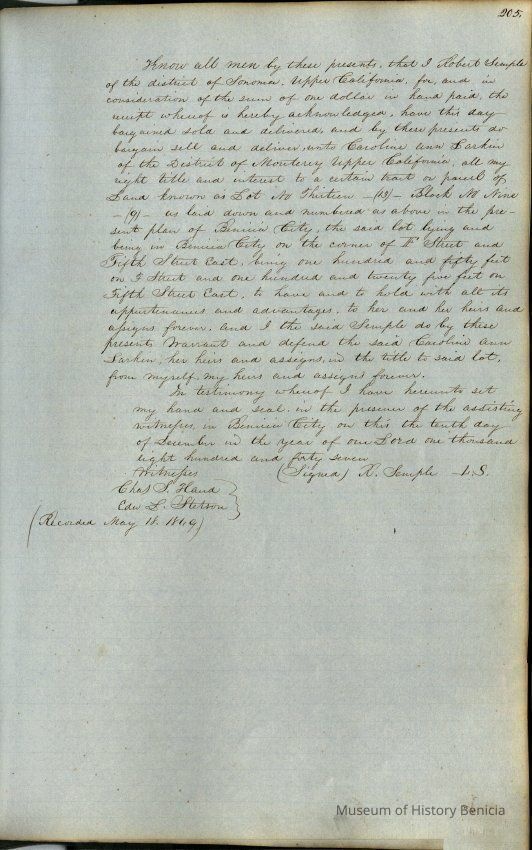 205.
Know all men by these presents, that I Robert Semple
of the district of Sonoma, Upper California, for, and in
consideration of the sum of one dollar in hand paid, the
receipt whereof is hereby acknowledged, have this day
bargained sold and delivered, and by these presents do
bargain sell and deliver, unto Caroline Ann Larkin
of the District of Monterey Upper California, all my
right title and interest to a certain tract or parcel of
Land known as Lot No Thirteen -(13)- Block No Nine
-(9)- as laid down and numbered as above in the pre-
sent plan of Benicia City, the said lot lying and
being in Benicia City on the corner of F Street and
Fifth Street East, being one hundred and fifty feet
on F Street and one hundred and twenty five feet on
Fifth Street East, to have and to hold with all its
appurtenances and advantages, to her and her heirs and
assigns forever, and I the said Semple do by these
presents warrant and defend the said Caroline Ann
Larkin, her heirs and assigns, in the title to said lot,
from myself, my heirs and assigns forever.
In testimony whereof I have hereunto set
my hand and seal in the presence of the assisting
witnesses, in Benicia City on this the tenth day
of December in the year of our Lord one thousand
eight hundred and forty seven
Witnesses (Signed) R. Semple L.S.
Chas S. Hand
Edw L. Stetson
(Recorded May 18. 1849)
Museum of History Benicia